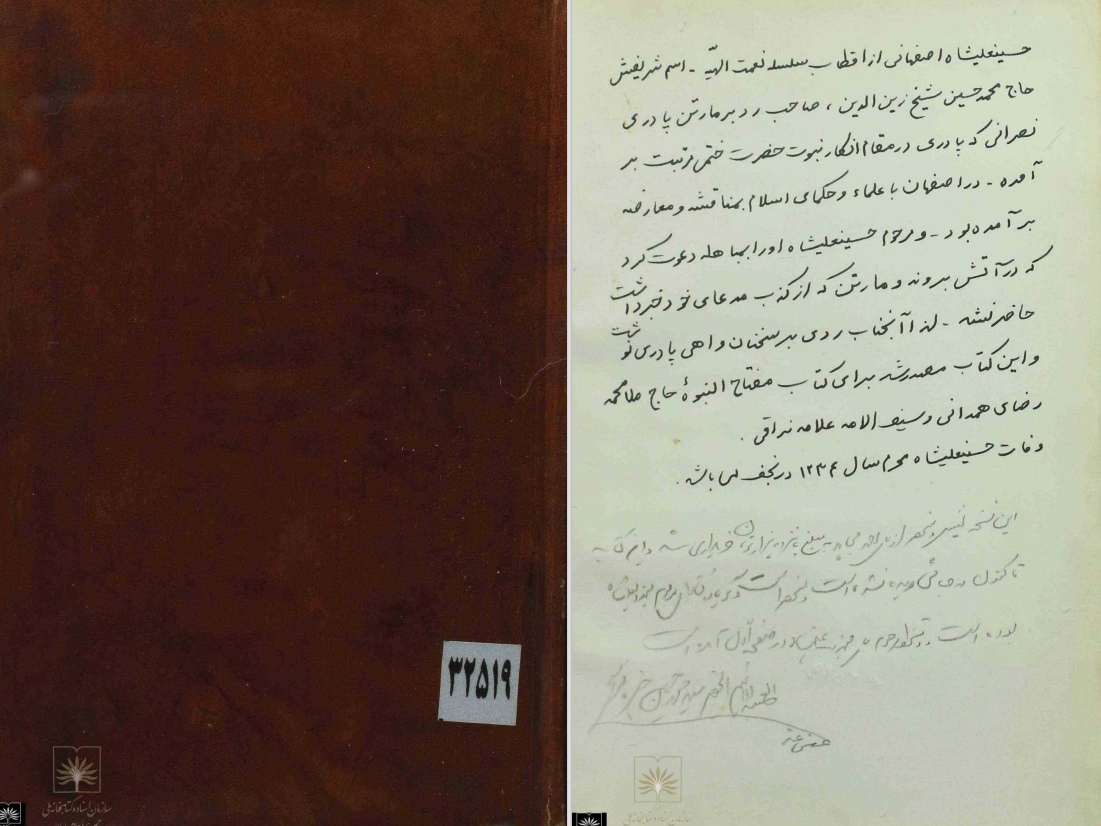 حسینعلیشاه اصفهانی از اقطاب سلسله نعمت الهیّه - اسم شریفش
حاج محمدحسین شیخ زین الدین ، صاحب رد بر مارتن پادری
نصرانی که پادری در مقام انکار نبوت حضرت ختمی مرتبت بر
آمده - در اصفهان با علماء و حکمای اسلام بمناقشه و معارضه
بر آمده بود - و مرحوم حسینعلیشاه او را بمباهله دعوت کرد
که در آتش بروند و مارتن که از کذب مدعای خود خبر داشت
حاضر نشد - لذا آنجناب ردی بر سخنان واهی پادری نوشت
و این کتاب مصدر شد برای کتاب مفتاح النبوهٔ حاج ملا محمد
رضای همدانی و سیف الامه علامه نراقی .
وفات حسینعلیشاه محرم سال ۱۲۳۴ در نجف می باشد .
این نسخه نفیس و منحصر از
خریداری شد و این کتاب
تا کنون در جائی دیده نشده است و منحصر است
بوده است و در صفحه اول آمده است
۳۲۵۱۹
سازمان اسناد و کتابخانه ملی